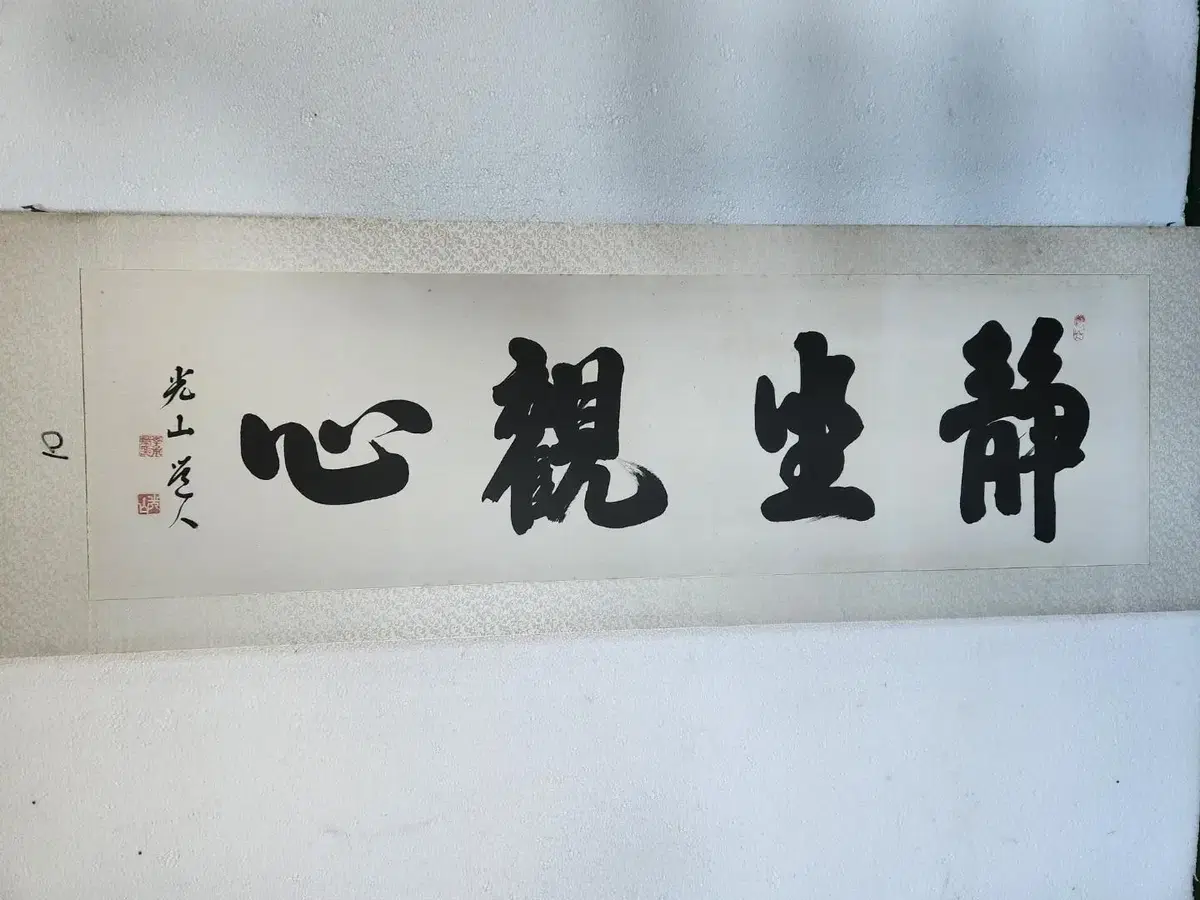 靜坐觀心
光山道人